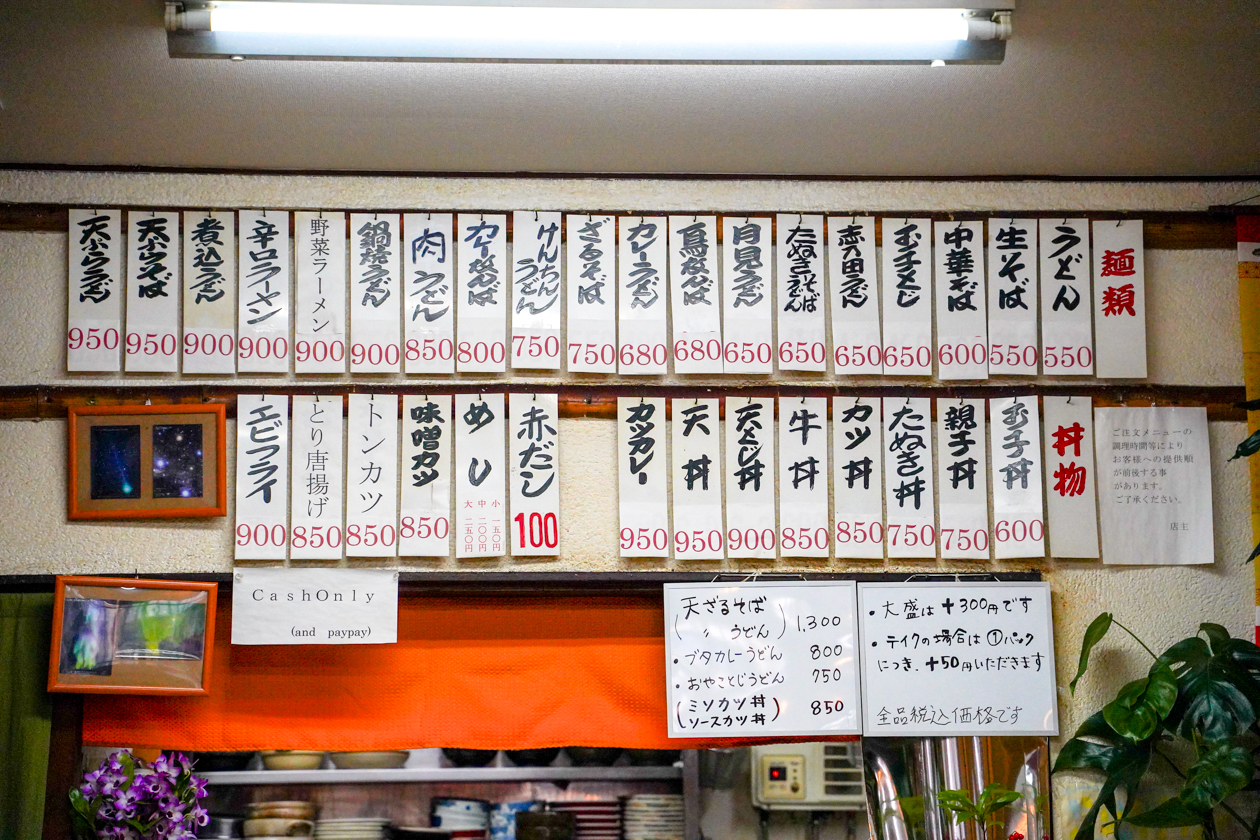 麺類
うどん 550
生そば 550
中華そば 600
玉子とじ 650
志の田うどん 650
たぬきそばうどん 650
月見うどん 650
鳥なんば 680
カレーうどん 680
ざるそば 750
けんちんうどん 750
カレーなんば 800
肉うどん 850
鍋焼うどん 900
野菜ラーメン 900
辛口ラーメン 900
煮込うどん 900
天ぷらそば 950
天ぷらうどん 950
ご注文メニューの
調理時間等により
お客様への提供順
が前後する事
があります。
ご了承ください。
店主
丼物
玉子丼 600
親子丼 750
たぬき丼 750
カツ丼 850
牛丼 850
天とじ丼 900
天丼 950
カツカレー 950
赤だし 100
めし
小 一五〇円
中 二〇〇円
大 二五〇円
味噌カツ 850
トンカツ 850
とり唐揚げ 850
エビフライ 900
CashOnly
(and paypay)
天ざるそば
( 〃 うどん ) 1,300
・ブタカレーうどん 800
・おやことじうどん 750
(ミソカツ丼
ソースカツ丼) 850
・大盛は+300円です
・テイクの場合は①パック
につき、+50円いただきます
全品税込価格です